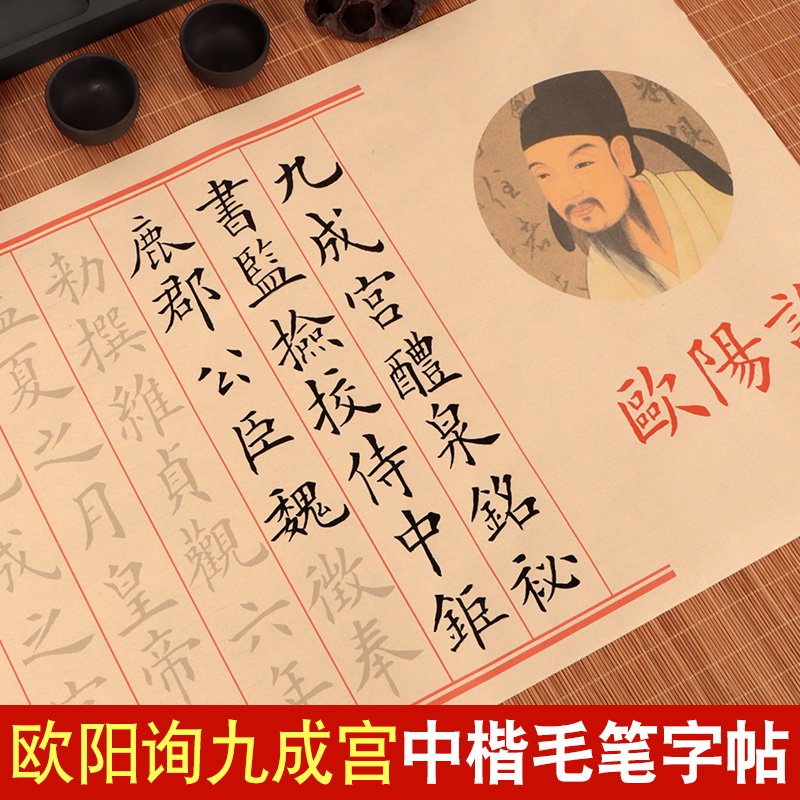 歐陽
九成宫醴泉銘秘
書監撿挍侍中鉅
鹿郡公臣魏徵奉
勅撰維貞觀六年
孟夏之月皇帝
成之
欧阳询九成宫中楷毛笔字帖